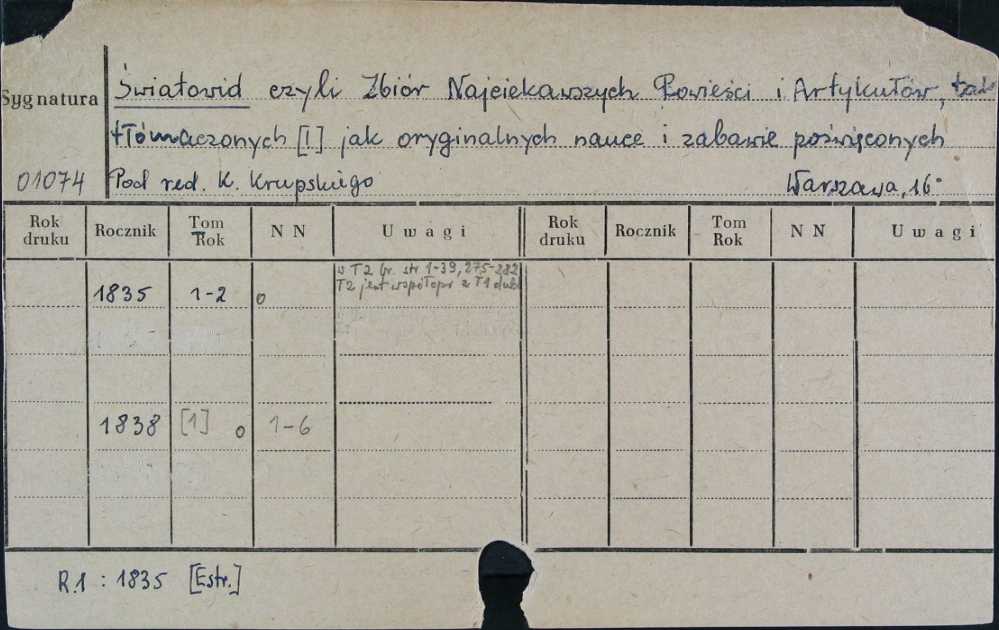 Sygnatura
Światowid czyli Zbiór Najciekawszych Powieści i Artykułów, tak
tłómaczonych [!] jak oryginalnych nauce i zabawie poświęconych
01074 Pod red. K. Krupskiego Warszawa, 16°
Rok druku Rocznik Tom Rok NN Uwagi Rok druku Rocznik Tom Rok NN Uwagi
w T2 br. str. 1-39, 275-282
1835 1-2 o T2 jest współopr z T1 dubl
1838 [1] o 1-6
R.1 : 1835 [Estr.]